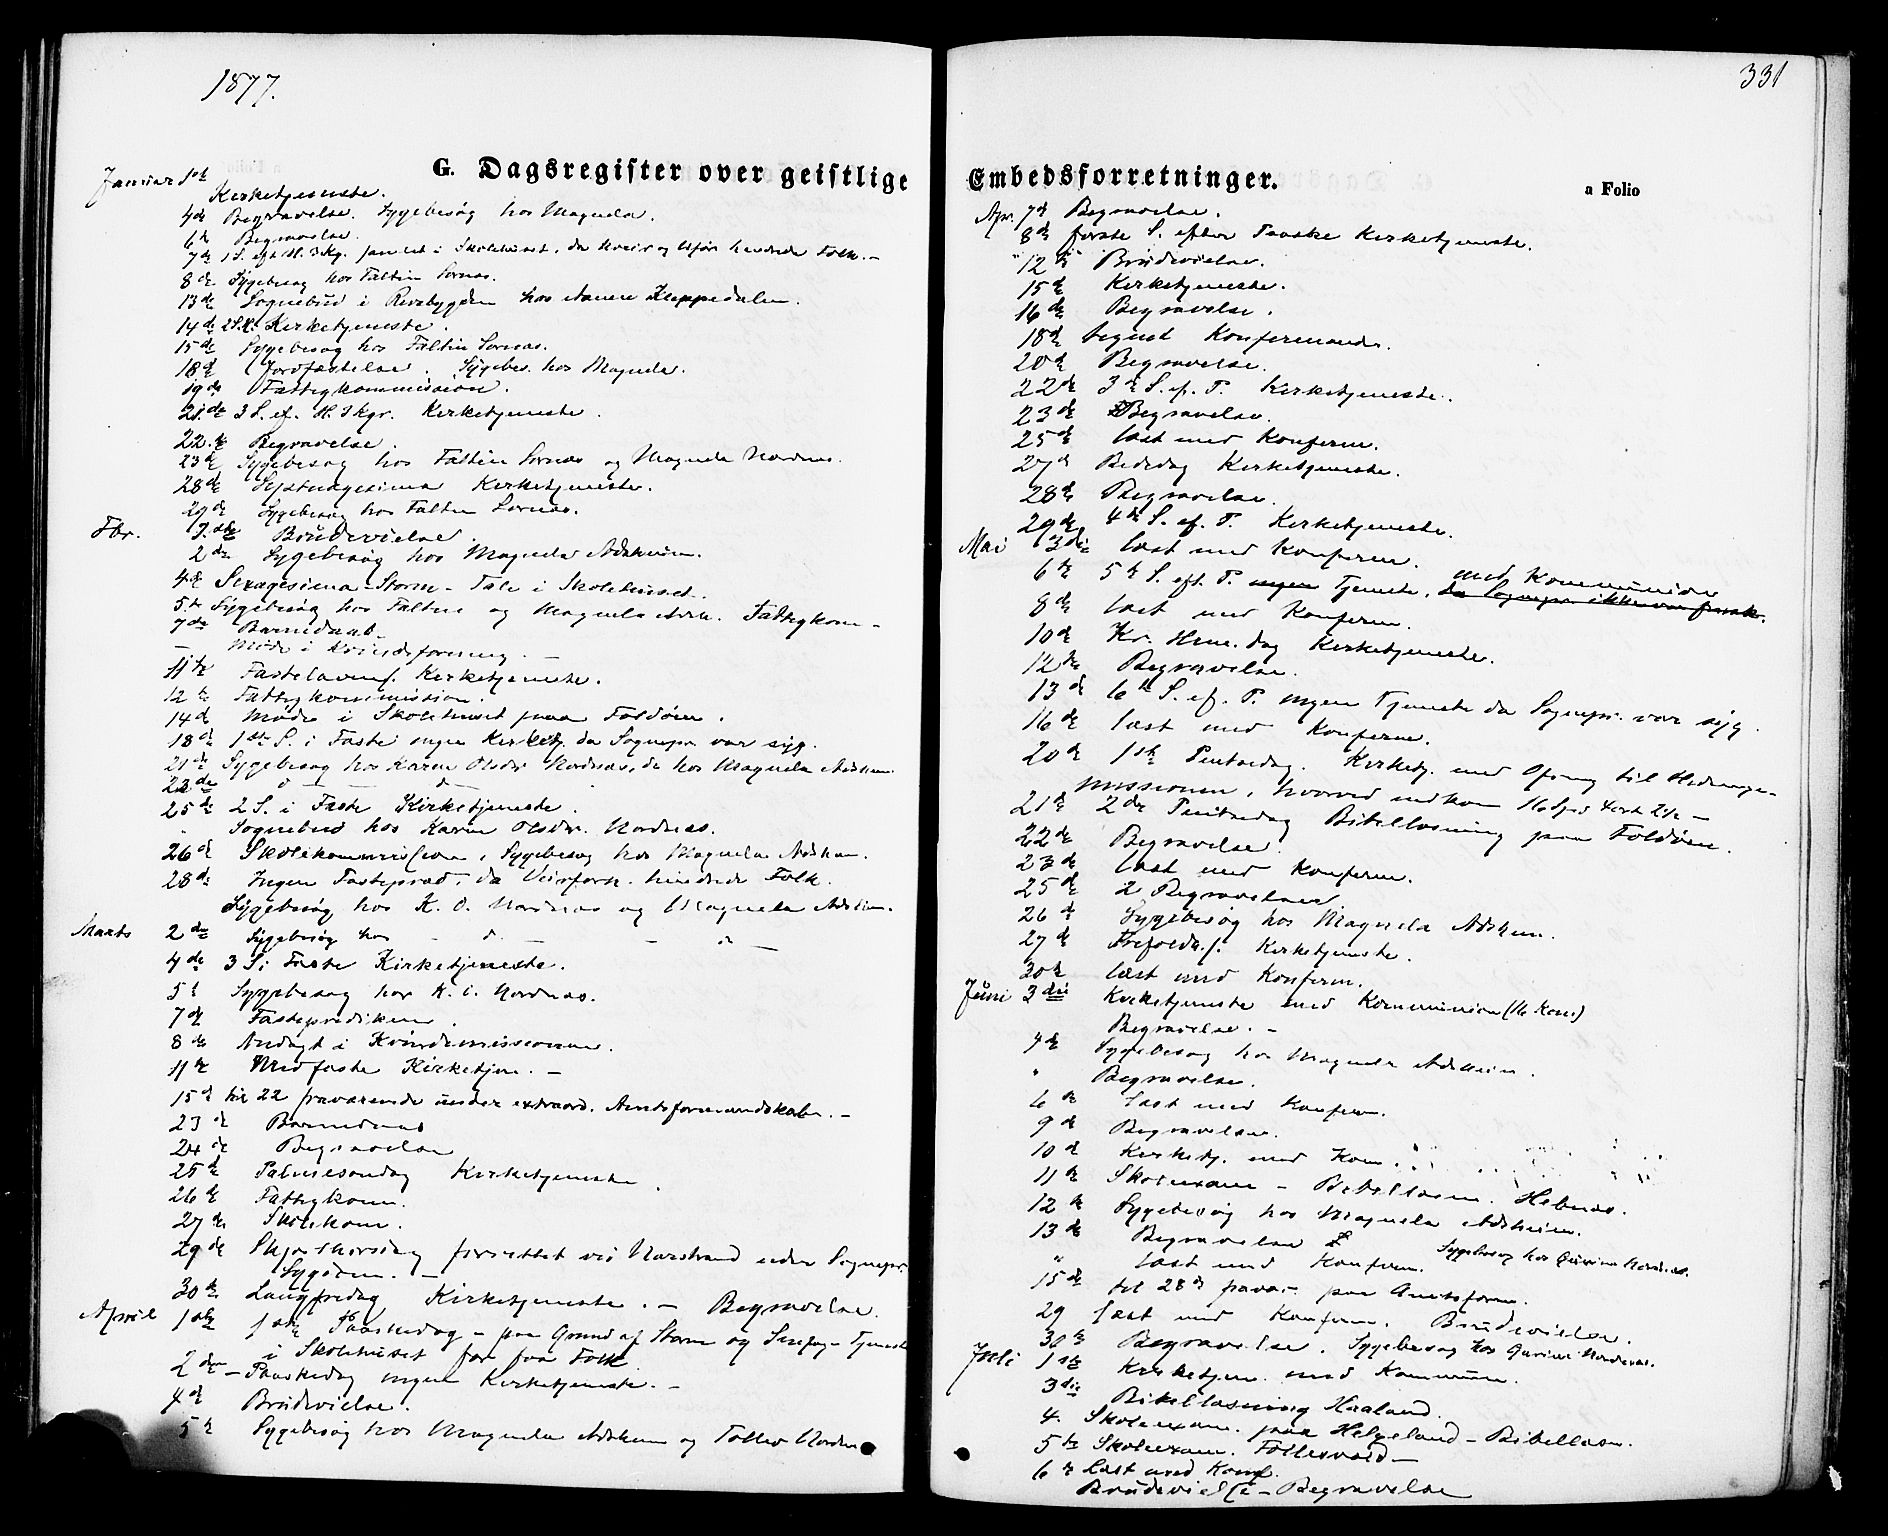 1877.
G. Dagsregister over geistlige
Januar 1ste Kirketjeneste.
4de Begravelse. Sygebesøg hos Magnela.
6te Begravelse.
7de 1 S. eft. H. 3 Kg. samlet i Skolehuset, da Uveir og Ufør hindrede Folk. –
8de Sygebesøg hos Faltin Sornæs.
13de Sognebud i Revsbygden hos
14de 2 S. Kirketjeneste.
15de Sygebesøg hos Faltin Sornæs.
18de Jordfæstelse. Sygebes. hos Magnela.
19de Fattigkommission.
21de 3 S. ef. H. 3 kgr. Kirketjeneste.
22de Begravelse.
23de Sygebesøg hos Faltin Sornæs og Magnela Nordnæs.
28de Septuagesima Kirketjeneste.
29de Sygebesøg hos Faltin Sornæs.
Fbr. 1ste Brudevielse.
2den Sygebesøg hos Magnela Adsheim.
4de Sexagesima – Storm – Tale i Skolehuset.
5te Sygebesøg hos Faltin og Magnela Adsh. Fattigkom –
7de Barnedaab.
– Møde i Kvindeforening. –
11te Fastelavnss. Kirketjeneste.
12te Fattigkommission.
14de Møde i Skolehuset paa Foldøen.
18de 1ste S. i Faste ingen Kirketj. da Sognepr. var syg.
21de Sygebesøg hos Karen Olsdr Nordnæs, do hos Magnela Adsheim
22de d – – d –
25de 2 S. i Faste Kirketjeneste.
Sognebud hos Karen Olsdr. Nordnæs.
26de Skolekommission, Sygebesøg hos Magnela Adsheim.
28de Ingen Fastepræd. da Veirforh. hindrede Folk.
Sygebesøg hos K. O. Nordnæs og Magnela Adsheim.
Marts 2den Sygebesøg hos – d – – d –
4de 3 S. i Faste Kirketjeneste.
5te Sygebesøg hos K. O. Nordnæs.
7de Fasteprediken.
8de Andagt i Kvindemissionen.
11te Midfaste Kirketjen. –
15de til 22 fraværende under extraord. Amtsformandskabn. –
23de Barnedaab
24de Begravelse
25de Palmesøndag Kirketjeneste.
26de Fattigkom.
27de Skolekom.
29de Skjærthorsdag forrettet ved Narstrand under Sognepr. Sygdom. –
30te Langfredag Kirketjeneste. – Begravelse.
April 1ste 1ste Paaskedag – paa Grund af Storm og Snefog – Tjeneste
i Skolehuset for faa Folk
2den – Paaskedag ingen Kirketjeneste. –
4de Brudevielse.
5te Sygebesøg hos Magnela Adsheim og Nordnæs
331
Embedsforretninger.
a Folio
Apr. 7de Begravelse.
8de første S. efter Paaske Kirketjeneste.
" 12te Brudevielse.
15de Kirketjeneste.
16de Begravelse.
18de begynt Konfirmander.
20de Begravelse.
22de 3de S. ef. P. Kirketjeneste.
23de Begravelse.
25de læst med Konfirm.
27de Bededag Kirketjeneste.
28de Begravelse.
29de 4de S. ef. P. Kirketjeneste.
Mai 3die læst med Konfirm.
6te 5te S. eft. P. ingen Tjeneste, med Kommunion
da Sognepr. ikke var frisk.
8de læst med Konfirm.
10de Kr. Him. dag Kirketjeneste.
12te Begravelse.
13de 6te S. ef. P. ingen Tjeneste da Sognepr. var syg.
16de læst med Konfirm.
20de 1ste Pintsedag. Kirketj. med Ofring til Hedninge-
missionen, hvorved indkom
21de 2den Pintsedag Bibellæsning paa Foldøen.
22de Begravelse.
23de læst med Konfirm.
25de 2 Begravelser
26de Sygebesøg hos Magnela Adsheim.
27de Trefoldh.s. Kirketjeneste.
30te læst med Konfirm.
Juni 3die Kirketjeneste med Kommunion (16 Kom.)
Begravelse. –
4de Sygebesøg hos Magnela Adsheim.
" Begravelse.
6te læst med Konfirm.
9de Begravelse.
10de Kirketj. med Kom.
11te Skoleexam – Bibellæsn. Hebnæs.
12te Sygebesøg hos Magnela Adsheim.
13de Begravelse
" læst med Konfirm. Sygebesøg hos Gurine Nordnæs.
15de til 28de fravær. paa Amtsform.
29 læst med Konfirm. Brudevielse.
30te Begravelse. Sygebesøg hos Gurine Nordnæs.
Juli 1ste Kirketjen. med Kommun.
3die Bibellæsning Haaland.
4. Skoleexam. paa Helgeland – Bibellæsn.
5te Skoleexam. Follesvold –
6te Læst med Konf.
Brudevielse – Begravelse